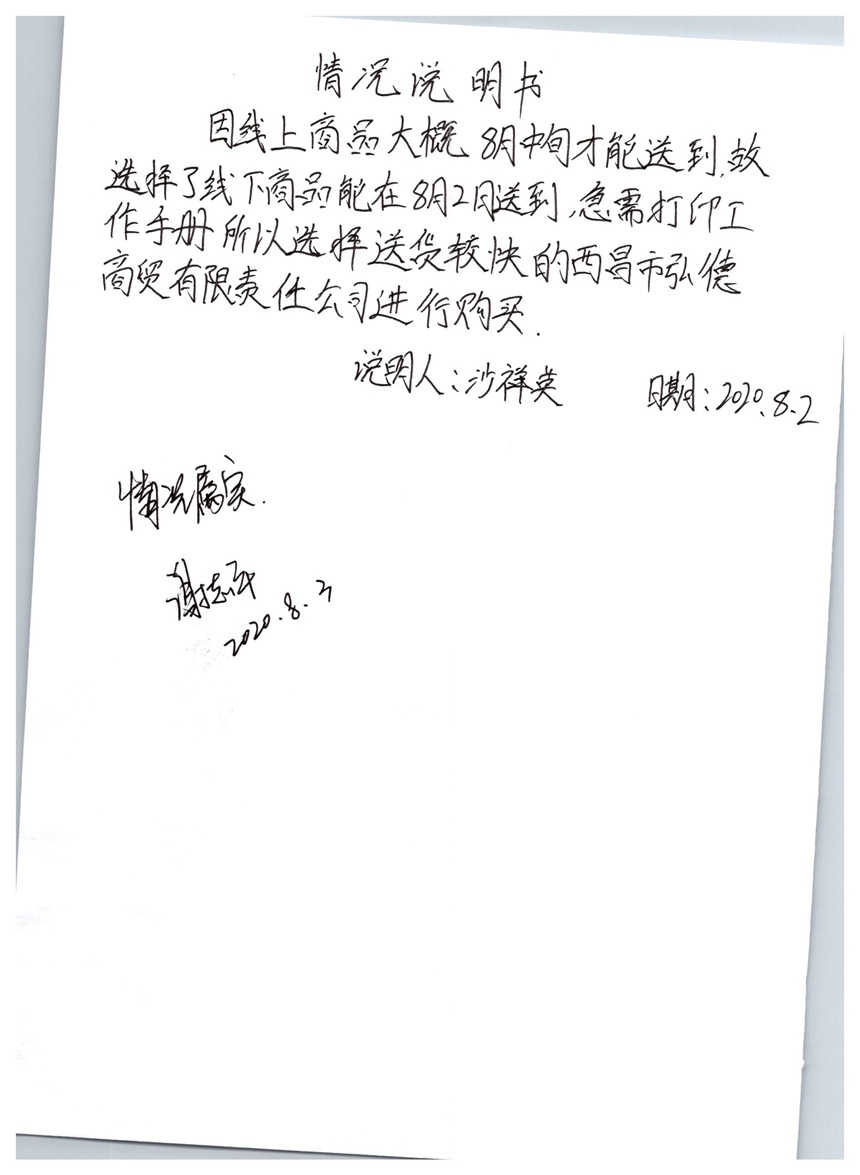 情况说明书
因线上商品大概8月中旬才能送到,故
选择了线下商品能在8月2日送到,急需打印工
作手册所以选择送货较快的西昌市弘德
商贸有限责任公司进行购买.
说明人:沙祥英 日期:2020.8.2
情况属实.
谢志
2020.8.3